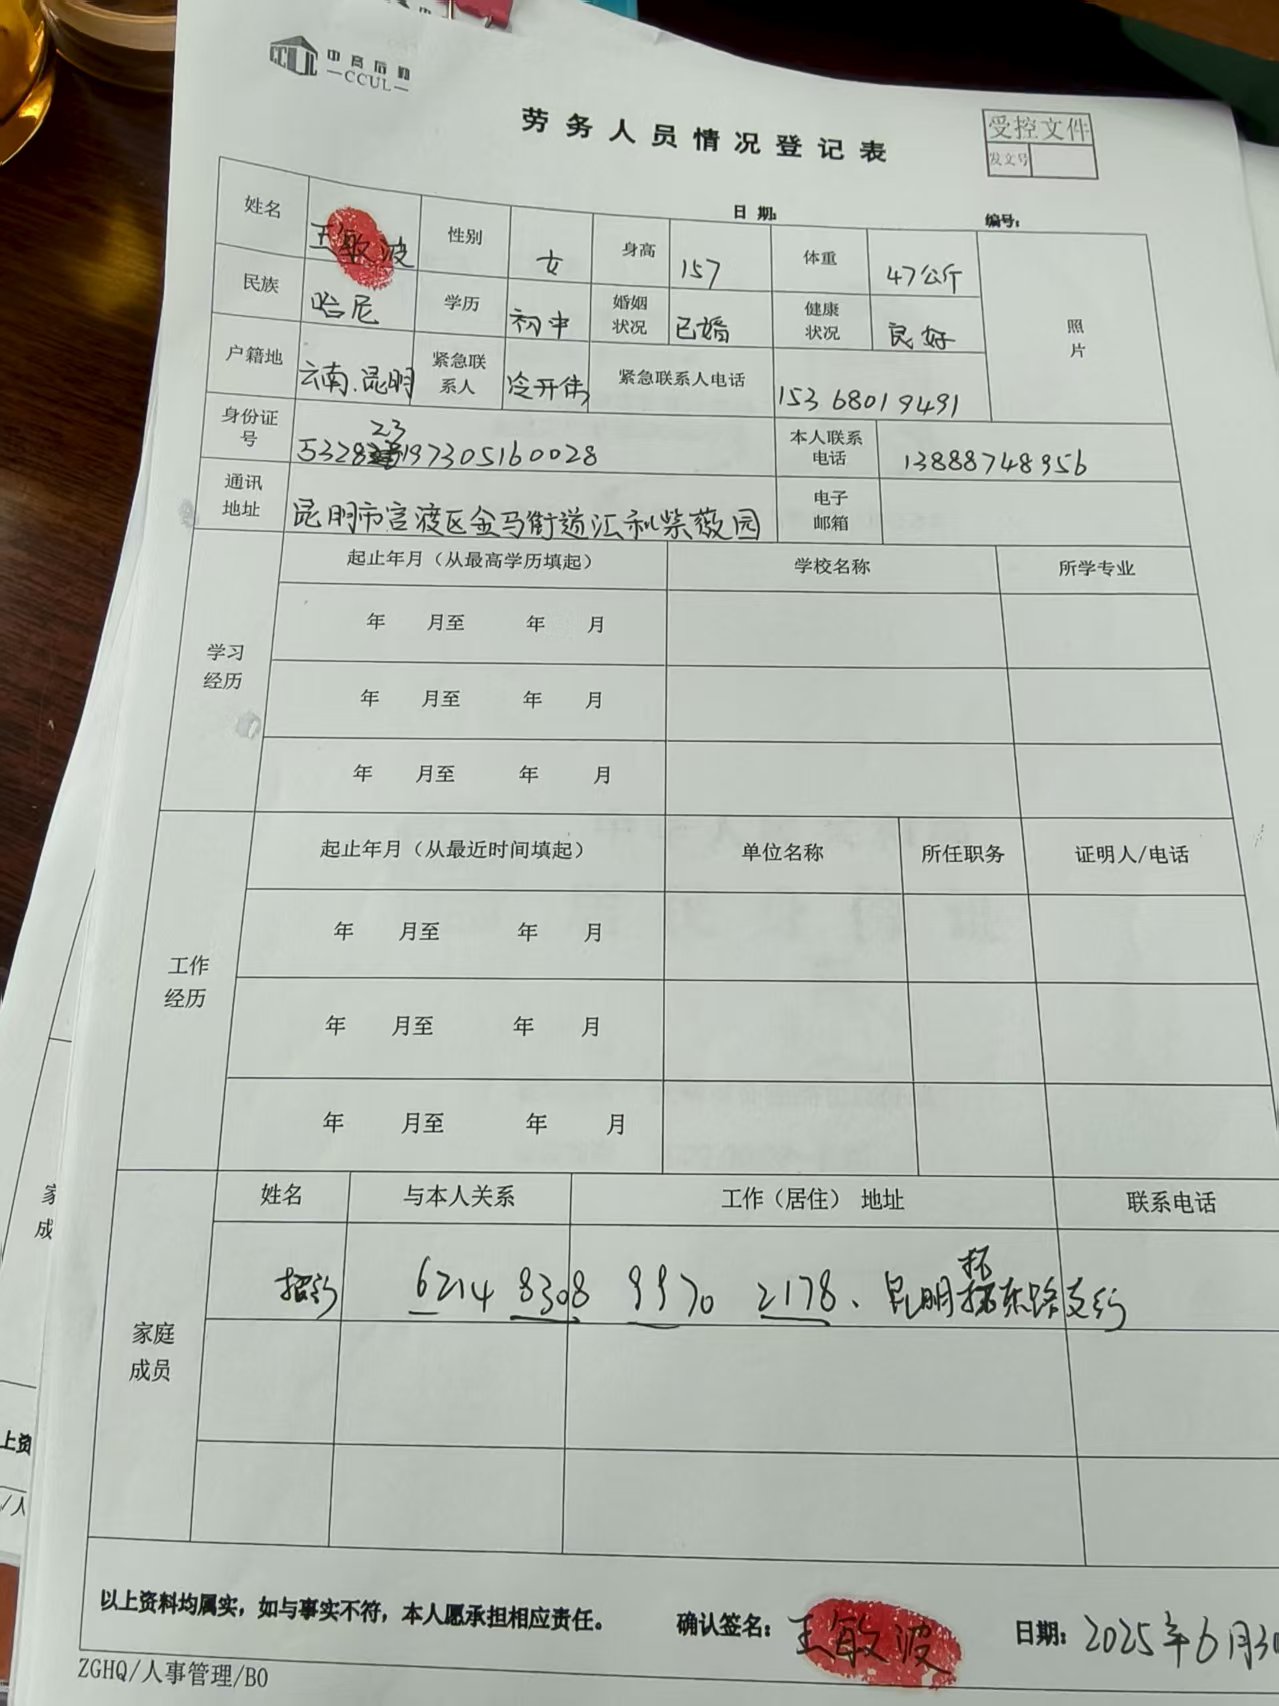 中高后勤
CCUL
劳务人员情况登记表
受控文件
发文号
日 期:
编号:
姓名 王敏波 性别 女 身高 157 体重 47公斤 照片
民族 哈尼 学历 初中 婚姻状况 已婚 健康状况 良好
户籍地 云南.昆明 紧急联系人 冷开伟 紧急联系人电话 15368019491
身份证号 532823197305160028 本人联系电话 13888748956
通讯地址 昆明市官渡区金马街道汇和紫薇园 电子邮箱
学习经历 起止年月（从最高学历填起） 学校名称 所学专业
年 月至 年 月
年 月至 年 月
年 月至 年 月
工作经历 起止年月（从最近时间填起） 单位名称 所任职务 证明人/电话
年 月至 年 月
年 月至 年 月
年 月至 年 月
家庭成员 姓名 与本人关系 工作（居住） 地址 联系电话
招行 6214 8308 9970 2178、昆明环东路支行
以上资料均属实，如与事实不符，本人愿承担相应责任。 确认签名：王敏波 日期：2025年6月30
ZGHQ/人事管理/B0
家
成
上资
/人